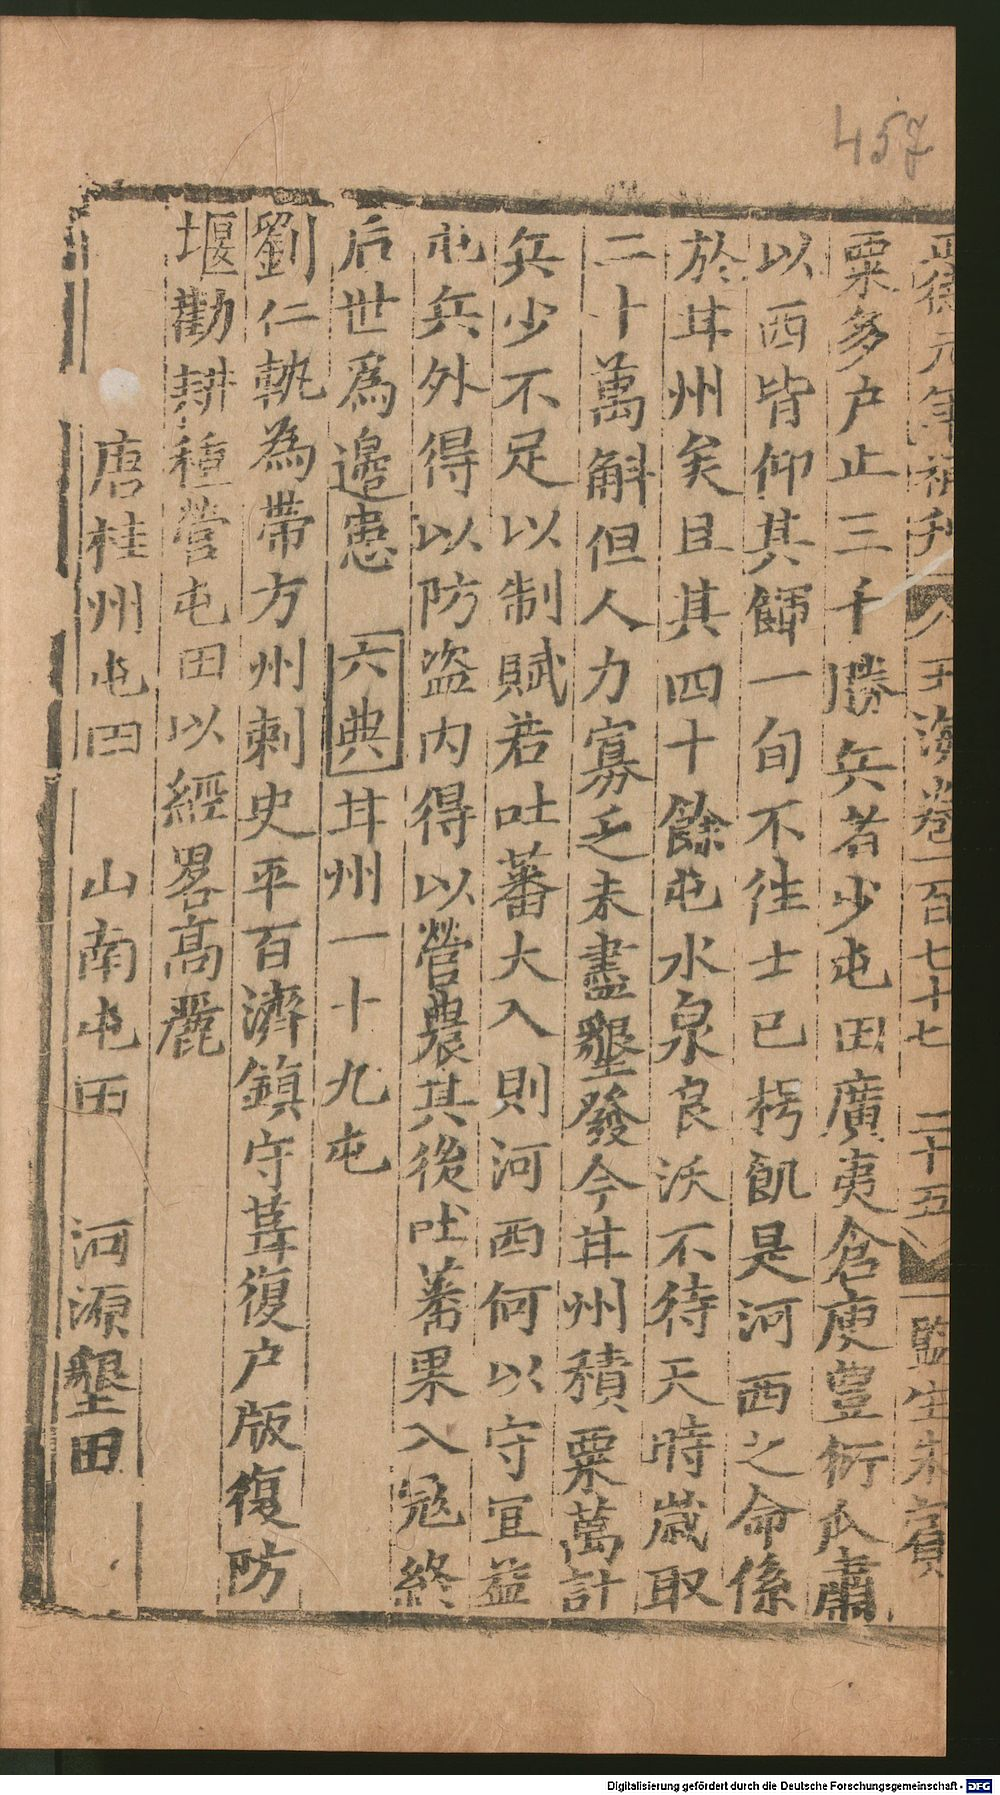 457
正德元年補刋 玉海卷一百七十七 二十五 監生朱賔
粟多户止三千勝兵者少屯田廣夷倉庾豊衍瓜肅
以西皆仰其餫一旬不徃士已枵飢是河西之命係
於甘州矣且其四十餘屯水泉良沃不待天時歳取
二十萬斛但人力寡乏未盡墾發今甘州積粟萬計
兵少不足以制賦若吐蕃大入則河西何以守宜益
屯兵外得以防盗内得以營農其後吐蕃果入冦終
后世爲邊患 六典甘州一十九屯
劉仁軌為帶方州刺史平百濟鎮守葺復户版復防
堰勸耕種營屯田以經畧高麗
唐桂州屯田 山南屯田 河源墾田
Digitalisierung gefördert durch die Deutsche Forschungsgemeinschaft - DFG